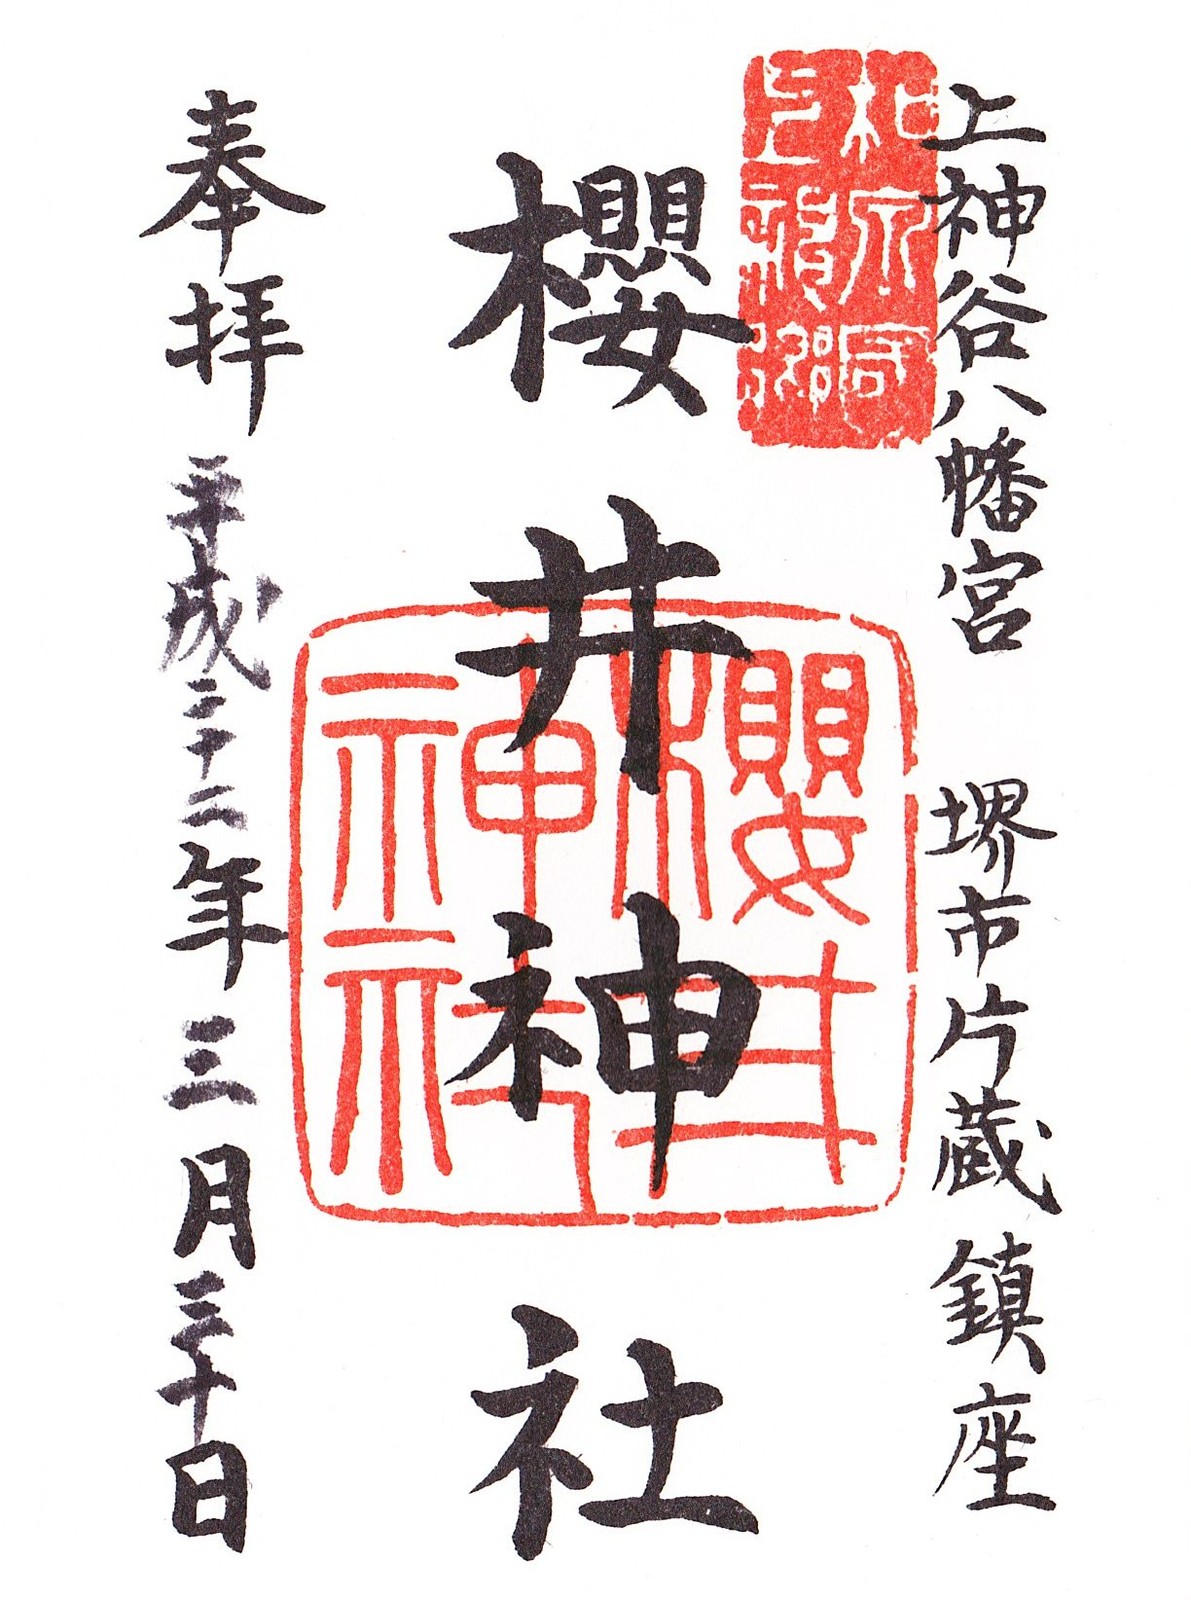 上神谷八幡宮　堺市片蔵鎮座
和泉國
上神郷
櫻井神社
櫻井
神社
奉拝　平成二十二年三月三十日